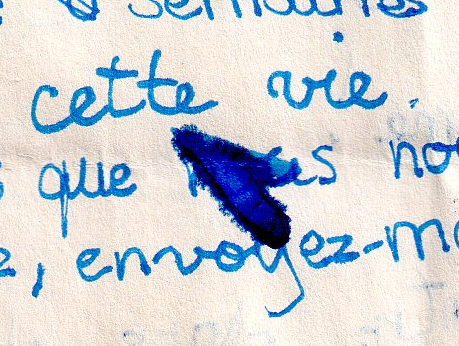 semaines
cette vie.
que nous
, envoyez-m